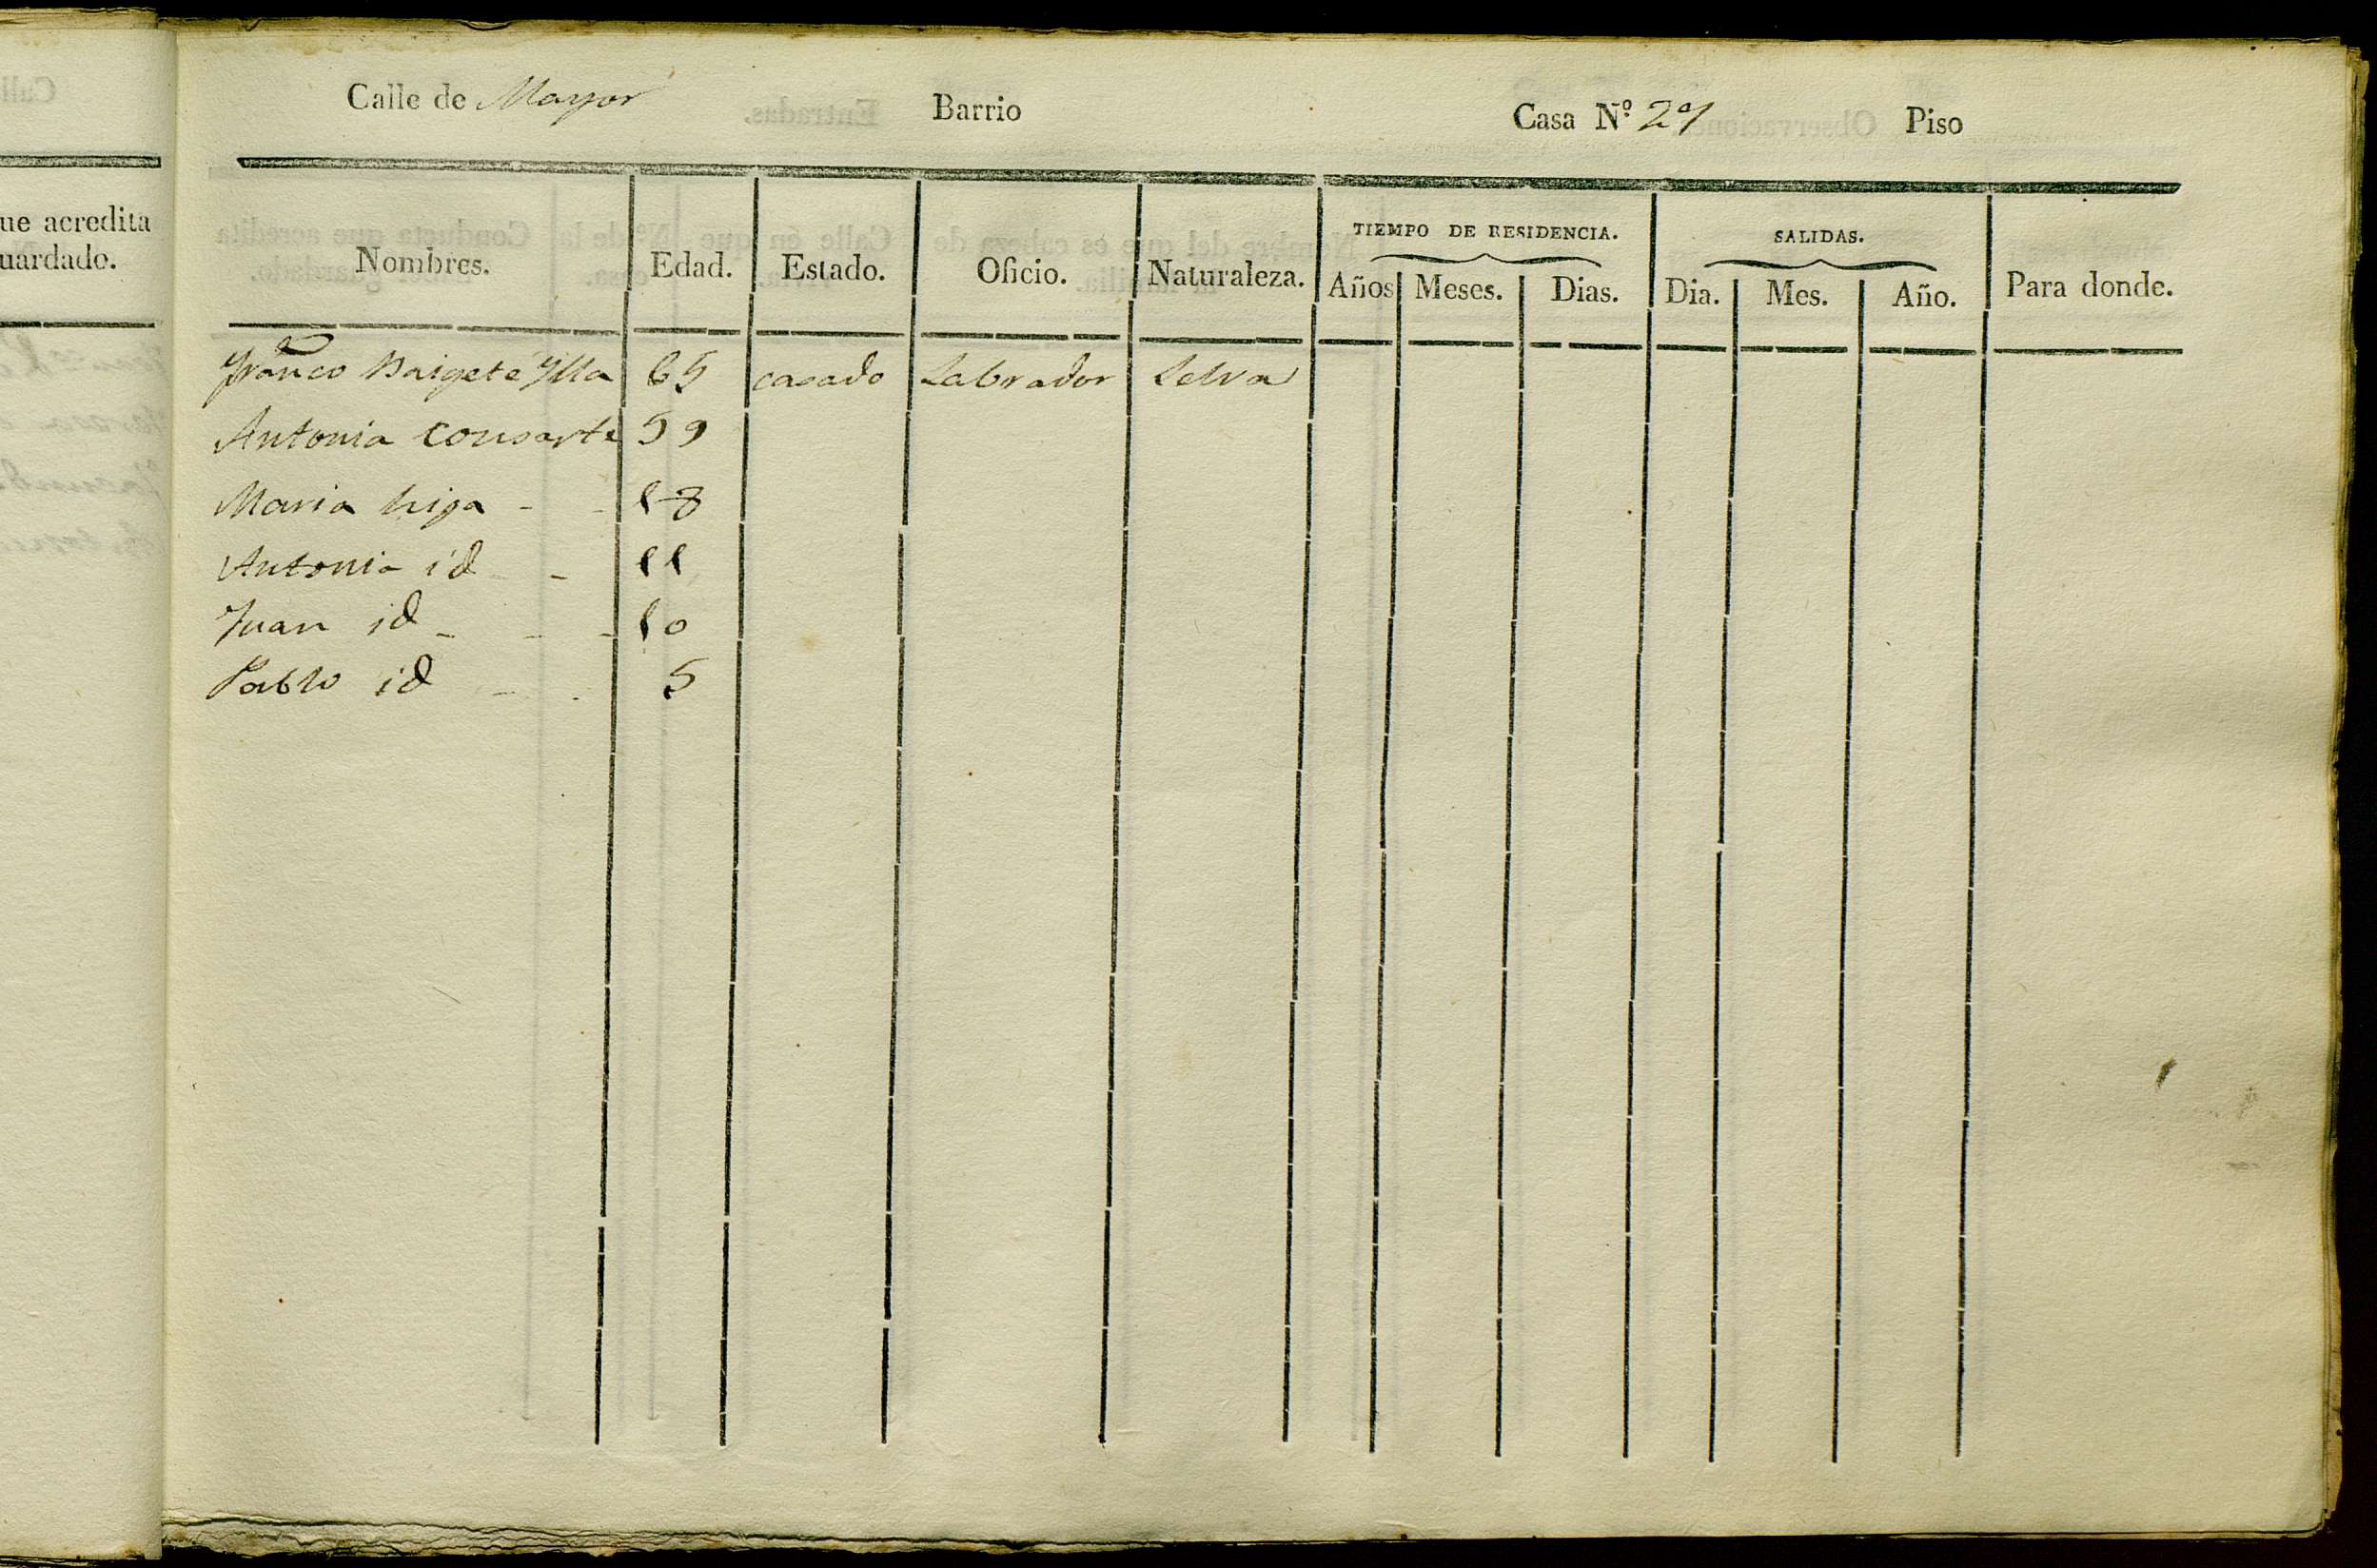 ue acredita
uardado.
Calle de Mayor Barrio Casa Nº 29 Piso
Nombres. Edad. Estado. Oficio. Naturaleza. TIEMPO DE RESIDENCIA. SALIDAS. Para donde.
Años Meses. Dias. Dia. Mes. Año.
Franco Baigete Ylla 65 casado Labrador Selva
Antonia consorte 59
Maria hija - - 18
Antonia id - 11
Juan id - - - 10
Pablo id - - 5